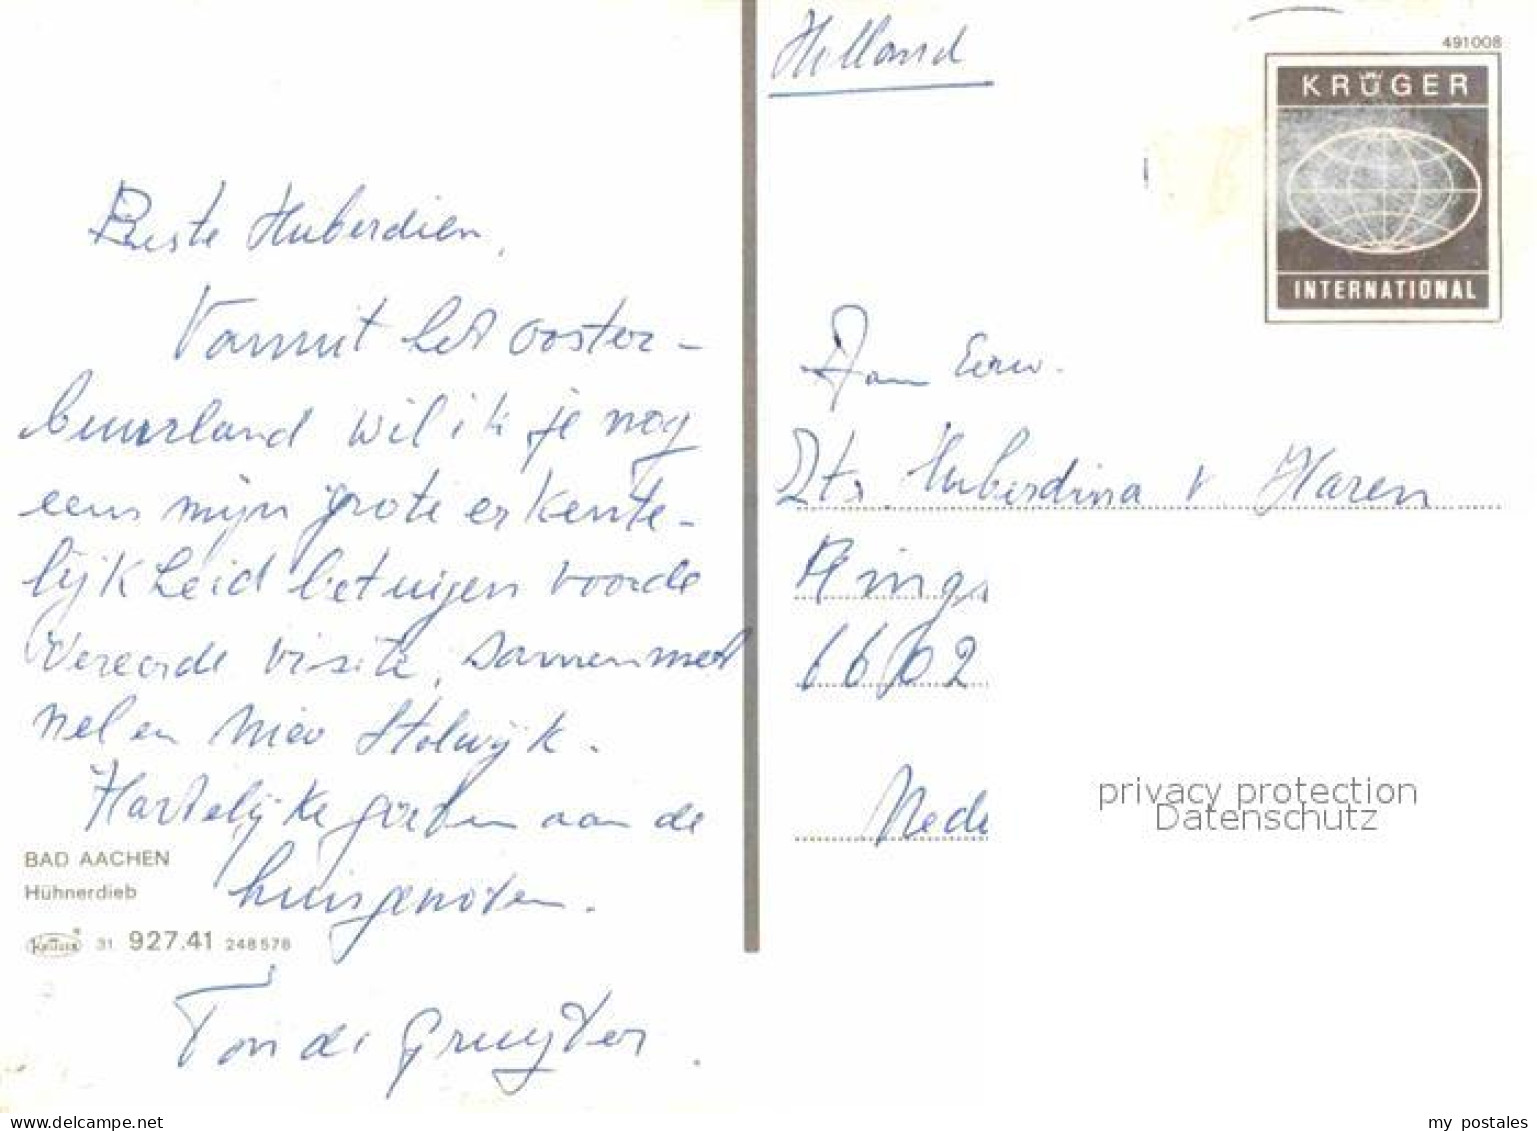 Beste Huberdien,
Vanuit het ooster-
buurland wil ik je nog
eens mijn grote erkente-
lijkheid betuigen voor de
vereerde visite, samen met
Nel en Stolwijk.
Hartelijke groeten aan de
huisgenoten.
Ton de Gruyter.
BAD AACHEN
Hühnerdieb
KRÜGER 31 927.41 248578
Holland
491008
KRÜGER
INTERNATIONAL
Aan Eerw.
Ztr. Huberdina v. Haren
Rings
6602
Nede
privacy protection
Datenschutz
www.delcampe.net
my_postales